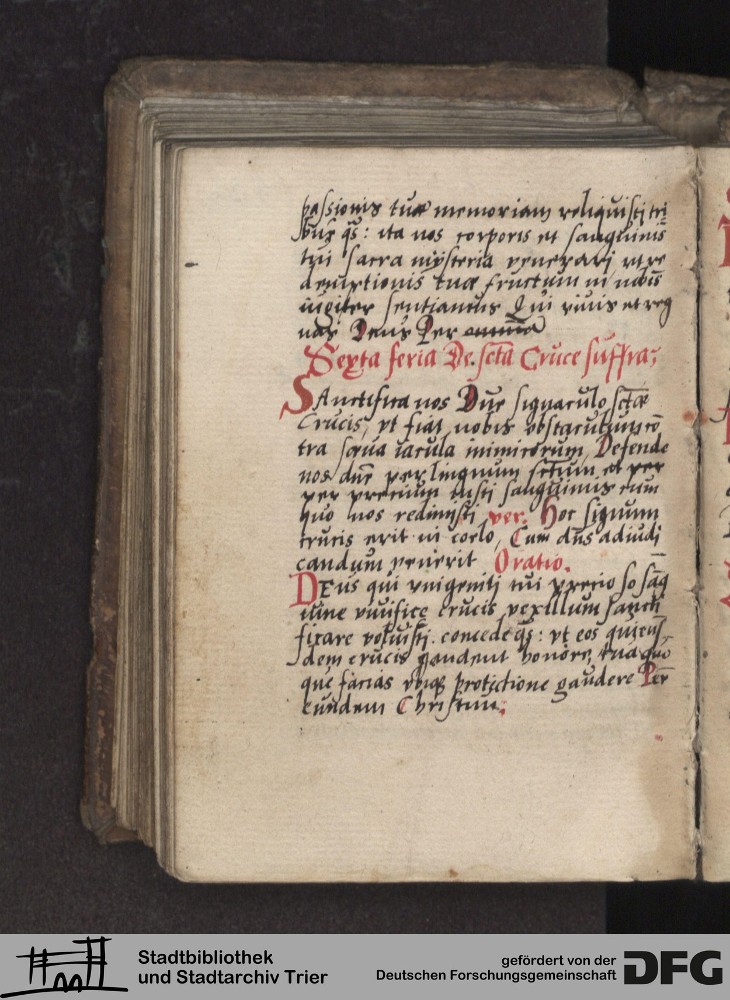 passionis tuæ memoriam reliquisti tri
bue q̄s: ita nos corporis et sanguinis
tui sacra mysteria venerari ut re
demptionis tuæ fructum in nobis
iugiter sentiamus Qui vivis et reg
nas Deus Per omnia
Sexta feria De sctā Cruce suffra;
SAnctifica nos Dne signaculo sctæ
Crucis, vt fiat nobis obstaculum cō
tra sæva iacula inimicorum, Defende
nos dne per lingnum sctum et per
per precium iusti sanguinis cum
quo nos redimisti ver. Hoc signum
crucis erit in coelo, Cum dn̄s adiudi
candum venerit Oratio.
DEus qui vnigeniti tui precio so sāg
uine vivifice crucis vexillum sancti
ficare voluisti. concede q̄s: vt eos qui eius
dem crucis gaudent honore, tua quo
que facias vbiq; protectione gaudere Per
eundem Christum;
Stadtbibliothek
und Stadtarchiv Trier
gefördert von der
Deutschen Forschungsgemeinschaft
DFG